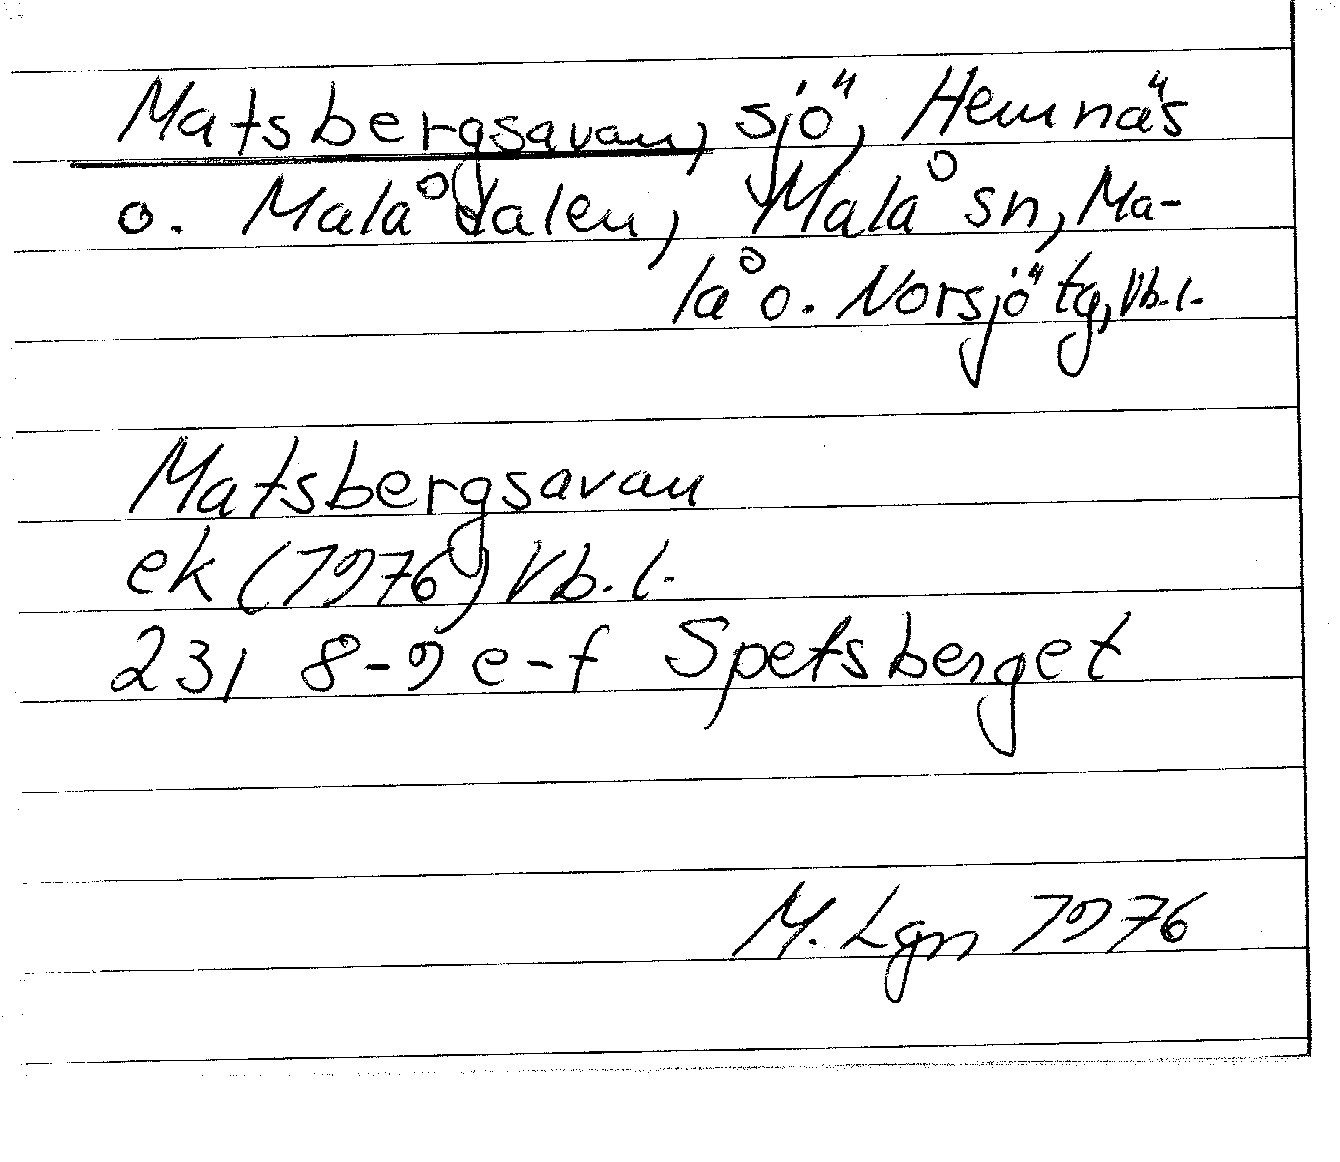 Matsbergsavan, sjö, Hemnäs
o. Malådalen, Malå sn, Ma-
lå o. Norsjö tg, Vb. l.
Matsbergsavan
ek (1976) Vb. l.
23I 8-9 e-f Spetsberget
M. Lgn 1976